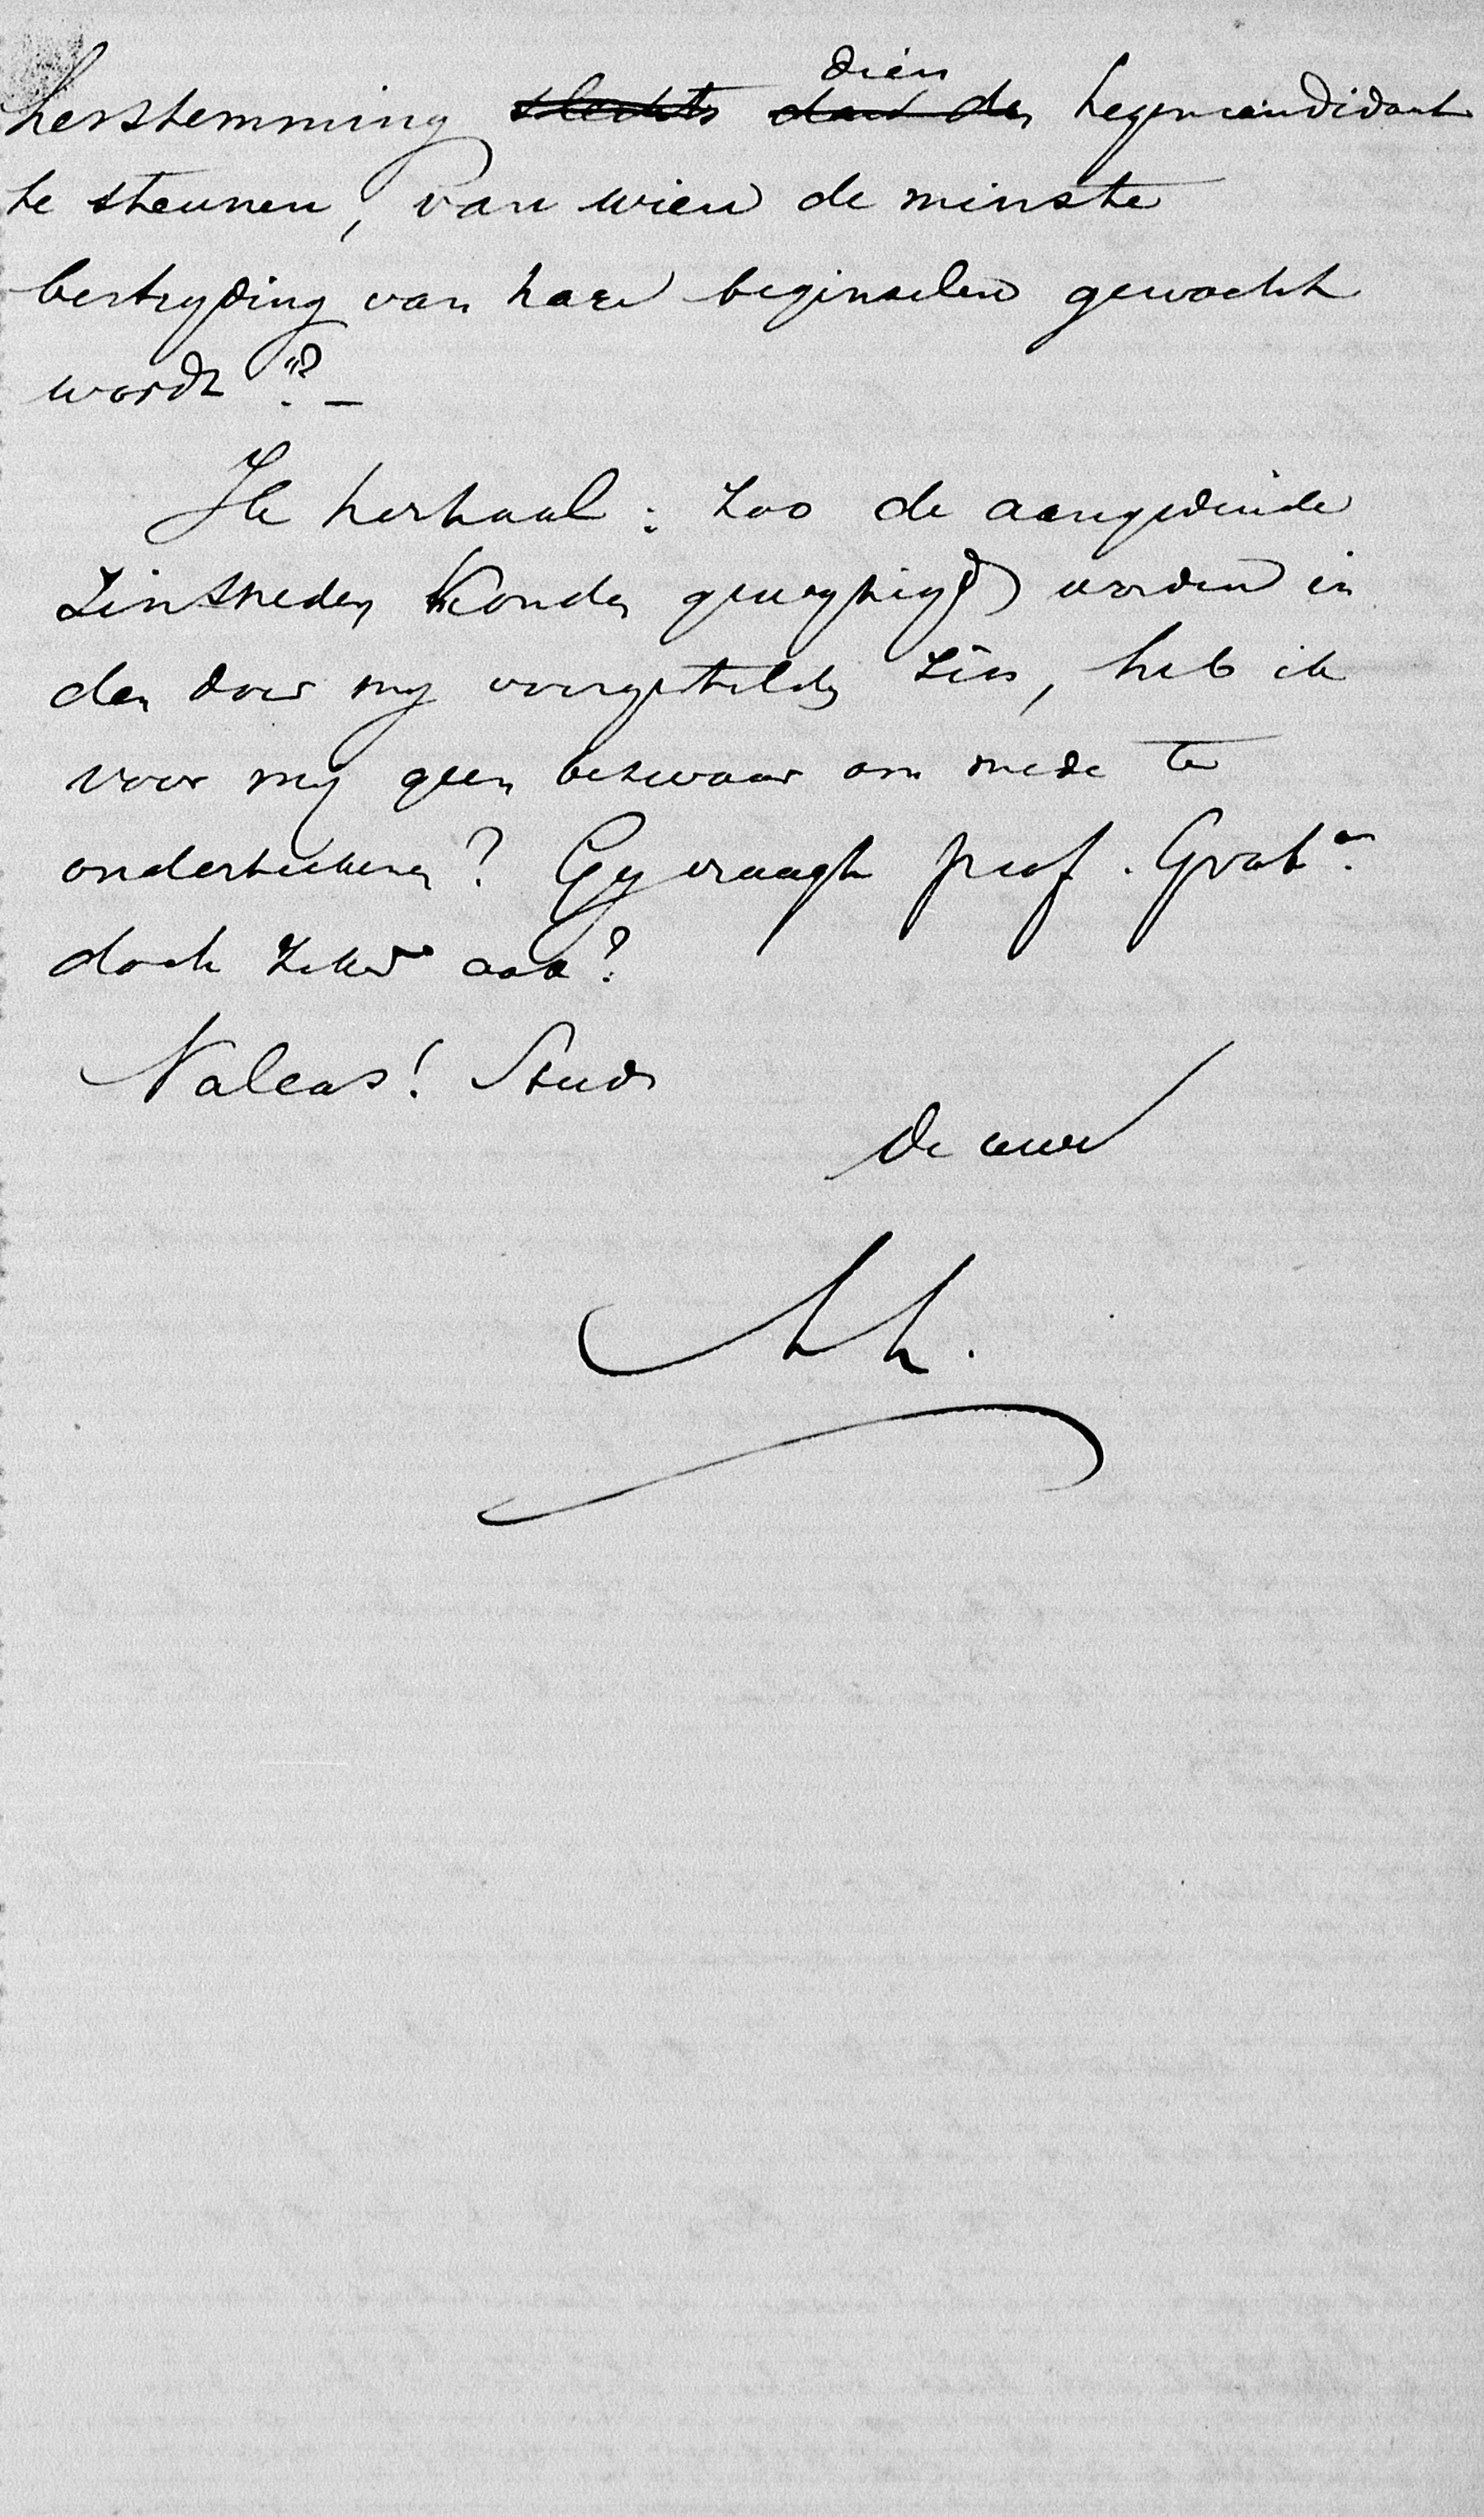 herstemming ~~slechts~~ ~~dan den~~ dien tegencandidaat
te steunen, van wien de minste
bestryding van hare beginselen gewacht
wordt"? –
Ik herhaal: zoo de aangeduide
zinsneden konden gewyzigd worden in
den door my voorgestelden zin, heb ik
voor my geen bezwaar om mede te
onderteekenen? Gy vraagt prof. Grat
doch zeker ook?
Valeas!
de uwe